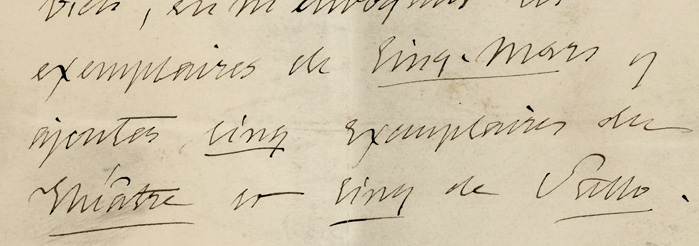 bien, en m'envoyant les
exemplaires de Cinq-Mars y
ajouter cinq exemplaires du
Théâtre et cinq de Stello.